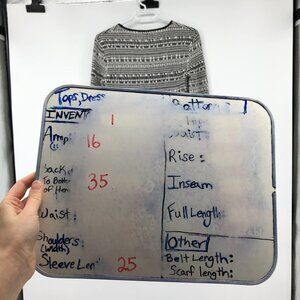 Tops, Dress
INVENT 1
Armpi 16
back
To Bott 35
of Hem
Waist:
Shoulders:
(width)
Sleeve Len 25
Bottoms
Waist:
Rise:
Inseam
Full Length:
Other
Belt Length:
Scarf Length: